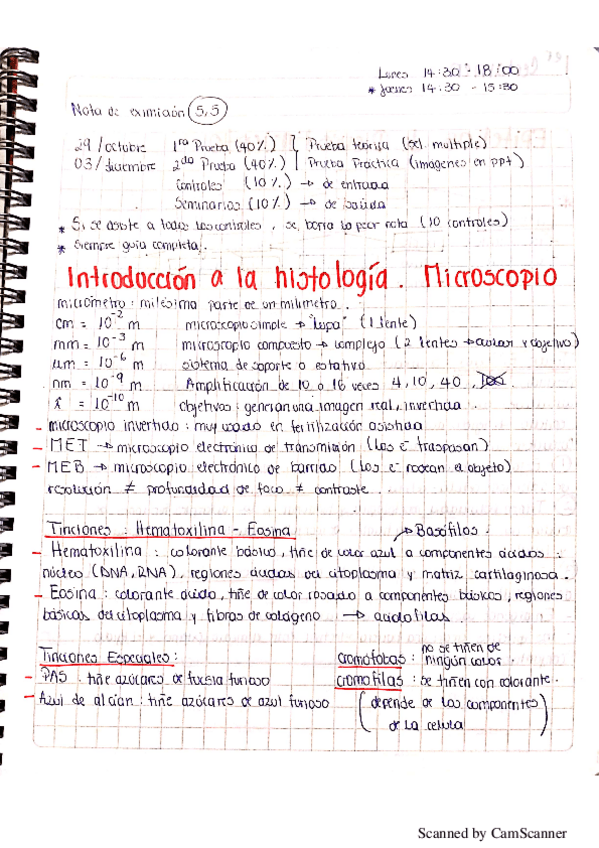 Lunes 14:30 - 18:00
* jueves 14:30 - 15:30
Nota de eximición 5,5
29/octubre 1ra Prueba (40%) Prueba teórica (sel. multiple)
03/diciembre 2da Prueba (40%) Prueba Práctica (imagenes en ppt)
Controles (10%) → de entrada
Seminarios (10%) → de salida
* Si se asiste a todos los controles, se borra la peor nota (10 controles)
* Siempre guía completa.
Introducción a la histología. Microscopio
micrómetro: milésima parte de un milimetro.
cm = 10⁻² m microscopio simple → "lupa" (1 lente)
mm = 10⁻³ m microscopio compuesto → complejo (2 lentes → ocular y objetivo)
um = 10⁻⁶ m sistema de soporte o estativo
nm = 10⁻⁹ m Amplificación de 10 o 16 veces 4, 10, 40,
= 10⁻¹⁰ m objetivos: generan una imagen real, invertida.
- microscopio invertido: muy usado en fertilización asistida
- MET → microscopio electrónico de transmisión (los e⁻ traspasan)
- MEB → microscopio electrónico de barrido (los e⁻ rodean el objeto)
resolución ≠ profundidad de foco ≠ contraste
Tinciones: Hematoxilina - Eosina → Basófilos.
- Hematoxilina: colorante básico, tiñe de color azul a componentes ácidos:
núcleo (DNA, RNA), regiones ácidas del citoplasma y matriz cartilaginosa.
- Eosina: colorante ácido, tiñe de color rosado a componentes básicos, regiones
básicas del citoplasma y fibras de colágeno → acidofilas
Tinciones Especiales:
- PAS: tiñe azúcares de fucsia furioso
- Azul de alcian: tiñe azúcares de azul furioso
cromofobas: no se tiñen de ningún color.
cromofilas: se tiñen con colorante.
(depende de los componentes
de la celula)
Scanned by CamScanner